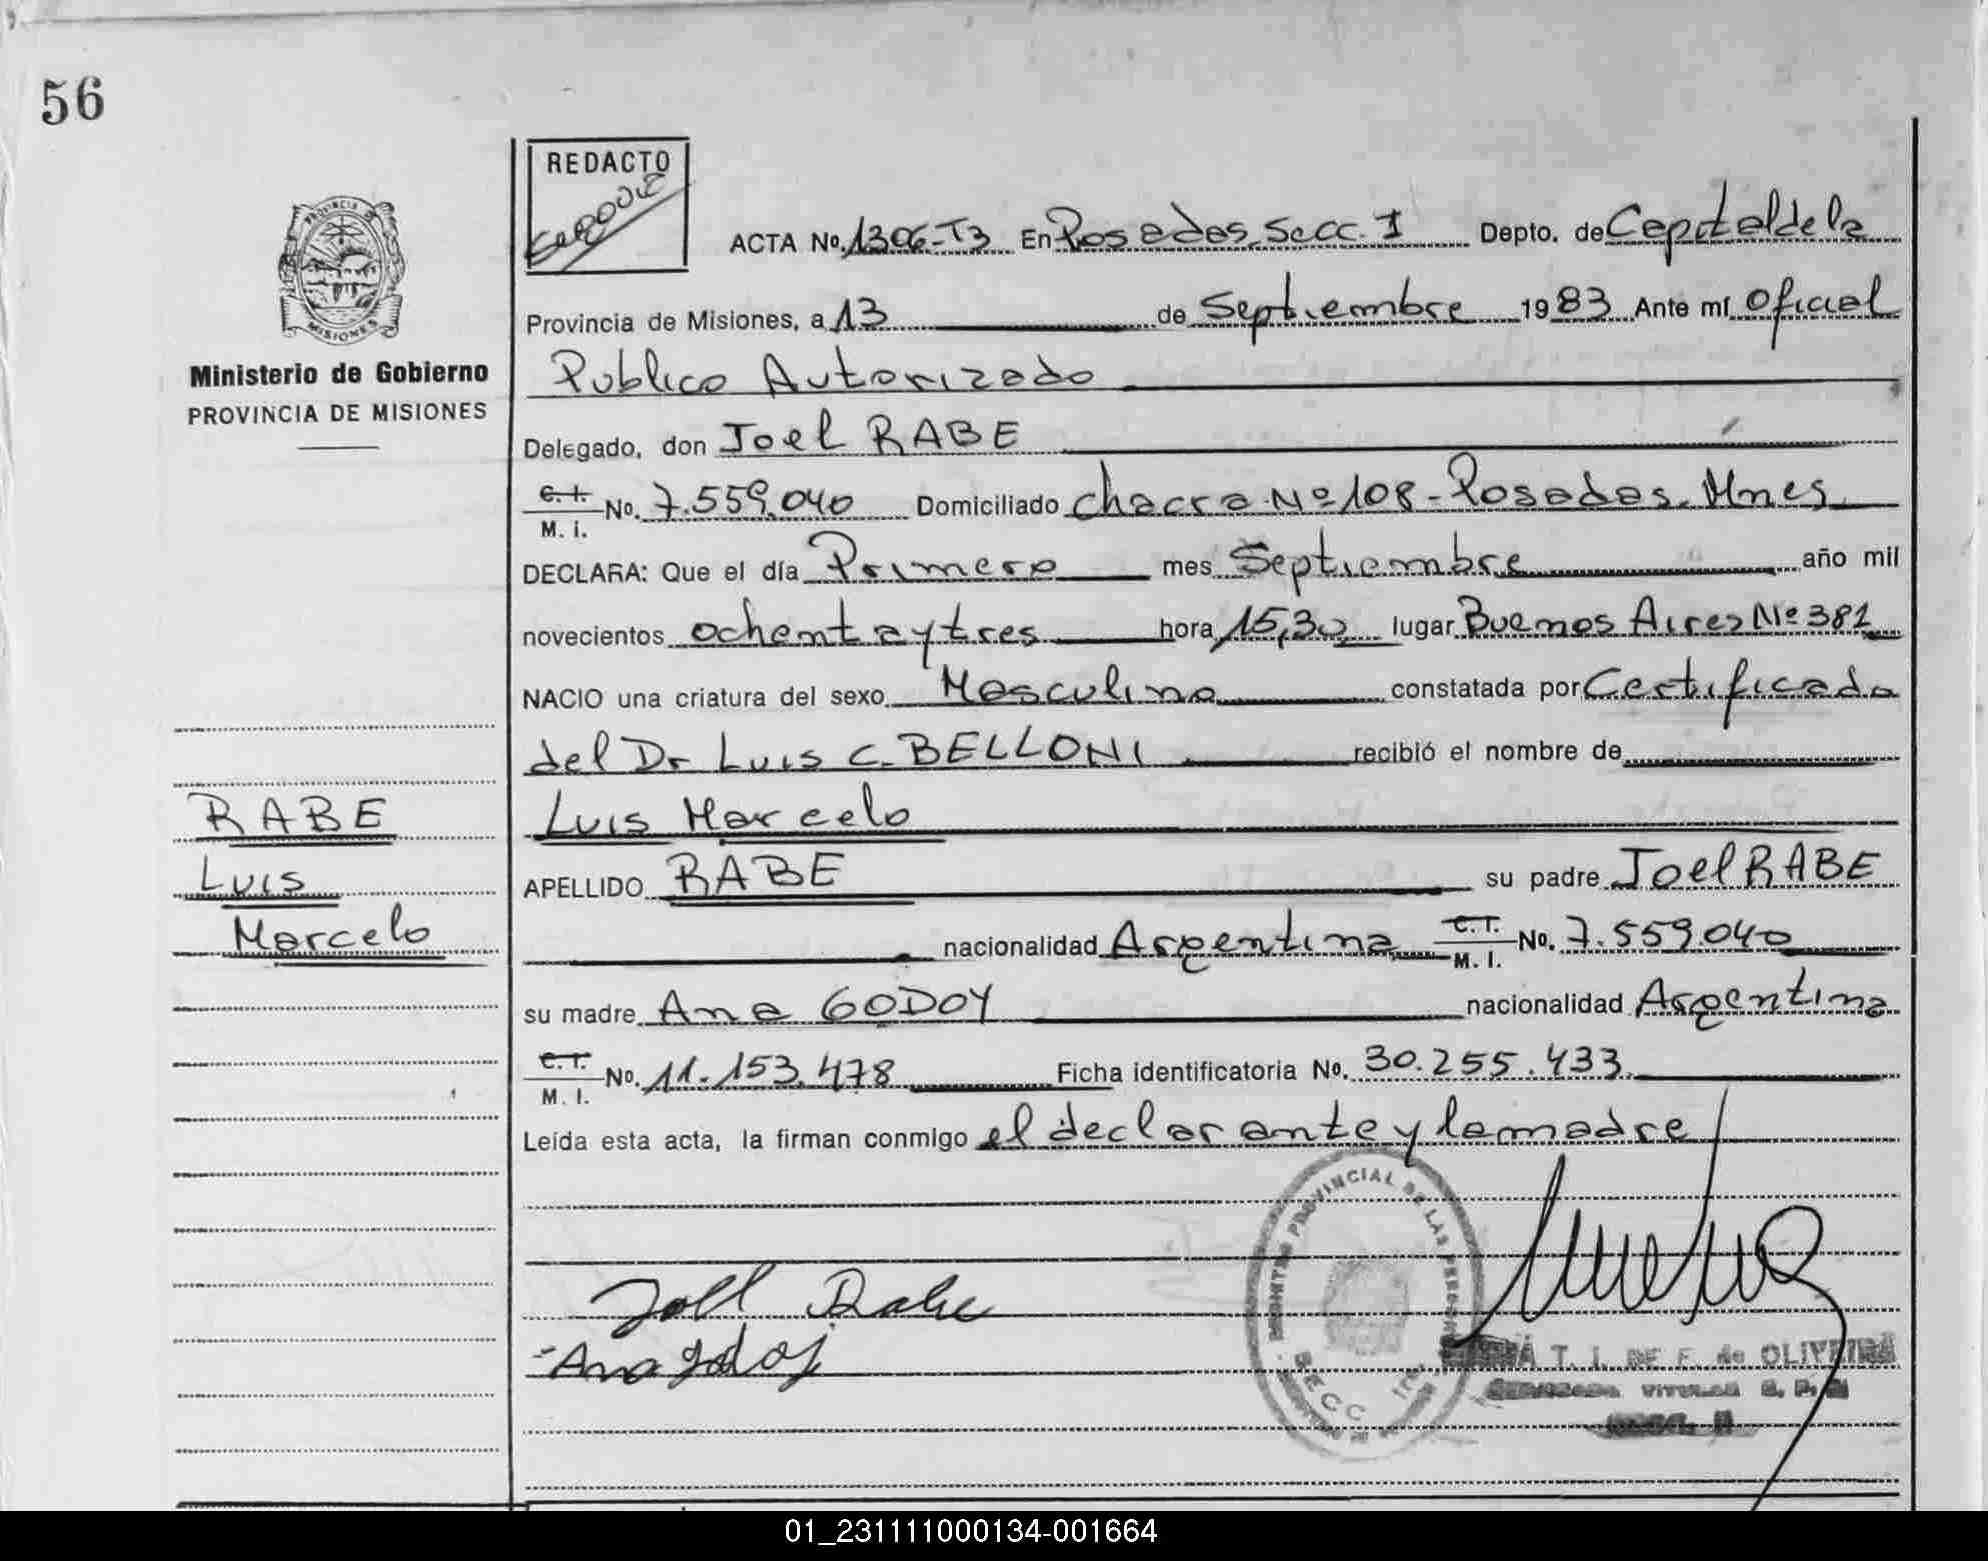 56
REDACTO
PROVINCIA DE
MISIONES
Ministerio de Gobierno
PROVINCIA DE MISIONES
ACTA No. 1306-T3 En Posadas, Secc. I Depto. de Capital de la
Provincia de Misiones, a 13 de Septiembre 1983 Ante mí Oficial
Publico Autorizado
Delegado, don Joel RABE
C. I. M. I. No. 7.559.040 Domiciliado Chacra Nº 108 - Posadas. Mnes
DECLARA: Que el día Primero mes Septiembre año mil
novecientos ochenta y tres hora 15,30 lugar Buenos Aires Nº 381
NACIO una criatura del sexo Masculino constatada por Certificado
del Dr Luis C. BELLONI recibió el nombre de
RABE
Luis
Marcelo
Luis Marcelo
APELLIDO RABE su padre Joel RABE
nacionalidad Argentina C. I. M. I. No. 7.559.040
su madre Ana GODOY nacionalidad Argentina
C. I. M. I. No. 11.153.478 Ficha identificatoria No. 30.255.433
Leída esta acta, la firman conmigo el declarante y la madre
PROVINCIAL DE LAS
SECC
Joel Rabe
Ana Godoy
T. I. DE F. de OLIVEIRA
01_231111000134-001664